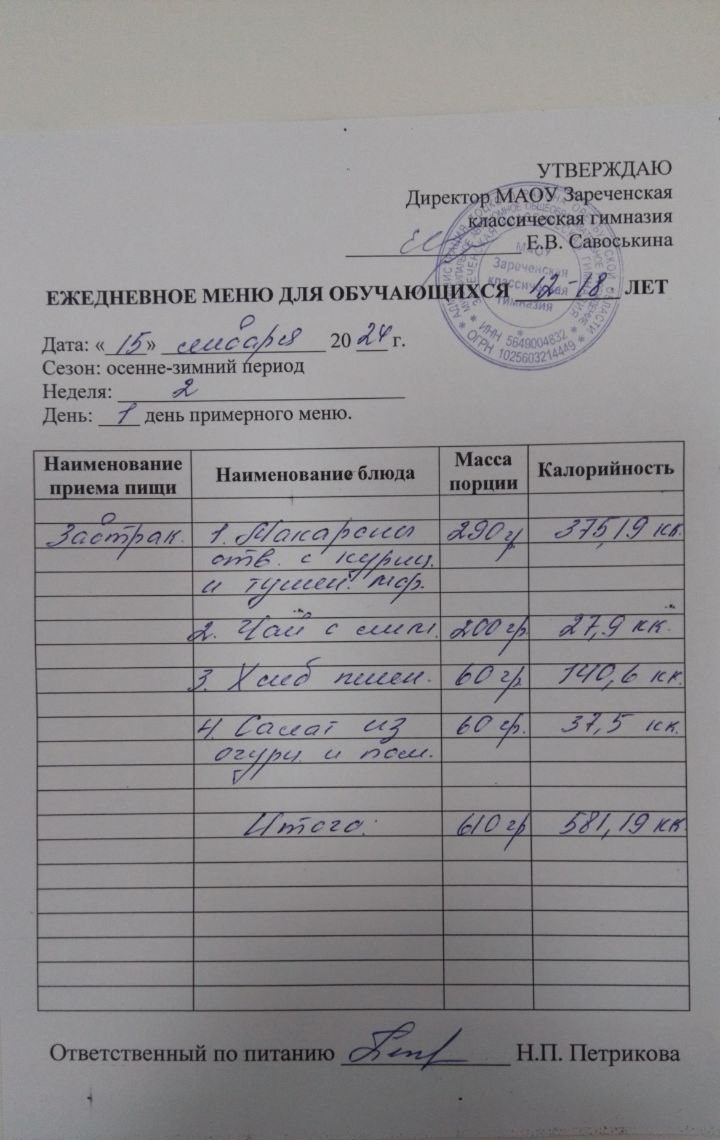 УТВЕРЖДАЮ
Директор МАОУ Зареченская
классическая гимназия
Е.В. Савоськина
МАОУ
Зареченская
классическая
гимназия
ИНН 5649004832
ОГРН 1025603214449
ЕЖЕДНЕВНОЕ МЕНЮ ДЛЯ ОБУЧАЮЩИХСЯ 12-18 ЛЕТ
Дата: «15» января 2024 г.
Сезон: осенне-зимний период
Неделя: 2
День: 1 день примерного меню.
Наименование приема пищи Наименование блюда Масса порции Калорийность
Завтрак. 1. Макароны 290 гр 375,19 кк.
отв. с куриц.
и тушен.
2. Чай с лим. 200 гр 27,9 кк.
3. Хлеб пшен. 60 гр 140,6 кк.
4. Салат из 60 гр. 37,5 кк.
огурц. и пом.
Итого: 610 гр 581,19 кк.
Ответственный по питанию Н.П. Петрикова